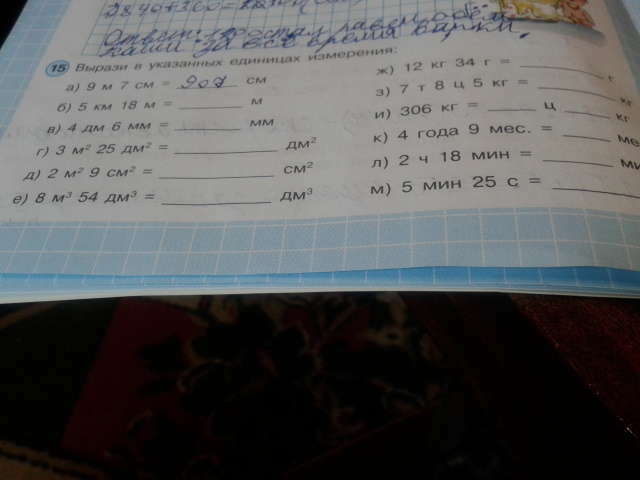 15 Вырази в указанных единицах измерения:
а) 9 м 7 см = 907 см
б) 5 км 18 м = ________ м
в) 4 дм 6 мм = ________ мм
г) 3 м² 25 дм² = ________ дм²
д) 2 м² 9 см² = ________ см²
е) 8 м³ 54 дм³ = ________ дм³
ж) 12 кг 34 г = ________ г
з) 7 т 8 ц 5 кг = ________ кг
и) 306 кг = ____ ц ____ кг
к) 4 года 9 мес. = ____ ме
л) 2 ч 18 мин = ________ ми
м) 5 мин 25 с = ________